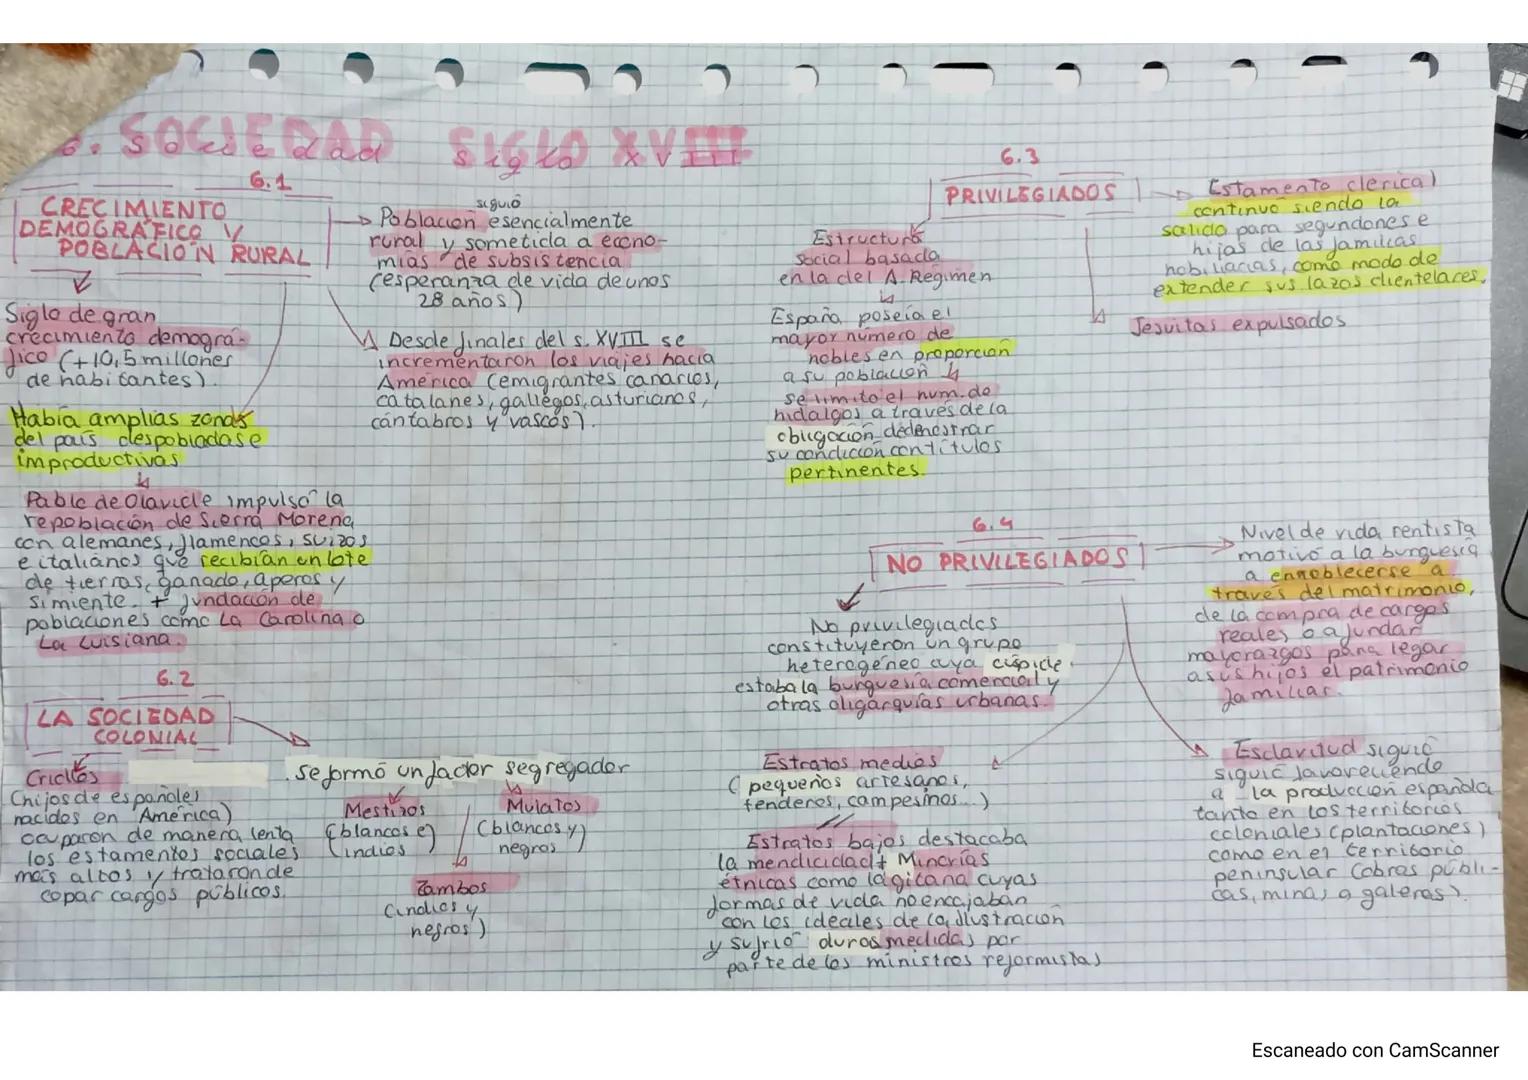 6. SOCIEDAD SIGLO XVIII
sociedad siglo XVIII
6.1
CRECIMIENTO
DEMOGRÁFICO Y
POBLACIÓN RURAL
Siglo de gran
crecimiento demográ-
fico (+10,5 millones
de habitantes).
Había amplias zonas
del país despobladas e
improductivas
Pablo de Olavide impulsó la
repoblación de Sierra Morena
con alemanes, flamencos, suizos
e italianos que recibían un lote
de tierras, ganado, aperos y
simiente. + fundación de
poblaciones como La Carolina o
La Luisiana.
siguió
Población esencialmente
rural y sometida a econo-
mías de subsistencia
(esperanza de vida de unos
28 años)
Desde finales del s. XVIII se
incrementaron los viajes hacia
América (emigrantes canarios,
catalanes, gallegos, asturianos,
cántabros y vascos).
6.2
LA SOCIEDAD
COLONIAL
Criollos
(hijos de españoles
nacidos en América)
ocuparon de manera lenta
los estamentos sociales
más altos y trataron de
copar cargos públicos.
se formó un factor segregador
Mestizos
(blancos e)
(indios
Mulatos
(blancos y)
negros)
Zambos
(indios y
negros)
6.3
PRIVILEGIADOS
Estructura
social basada
en la del A. Régimen
España poseía el
mayor número de
nobles en proporción
a su población
se limitó el num. de
hidalgos a través de la
obligación de demostrar
su condición con títulos
pertinentes.
Estamento clerical
continuó siendo la
salida para segundones e
hijas de las familias
nobiliarias, como modo de
extender sus lazos clientelares.
Jesuitas expulsados
6.4
NO PRIVILEGIADOS
No privilegiados
constituyeron un grupo
heterogéneo cuya cúspide
estaba la burguesía comercial y
otras oligarquías urbanas.
Estratos medios
(pequeños artesanos,
tenderos, campesinos...)
Estratos bajos destacaba
la mendicidad + Minorías
étnicas como la gitana cuyas
formas de vida no encajaban
con los ideales de la Ilustración
y sufrió duras medidas por
parte de los ministros reformistas
Nivel de vida rentista
motivó a la burguesía
a ennoblecerse a
través del matrimonio,
de la compra de cargos
reales o a fundar
mayorazgos para legar
a sus hijos el patrimonio
familiar.
Esclavitud siguió
siguió favoreciendo
a la producción española
tanto en los territorios
coloniales (plantaciones)
como en el territorio
peninsular (obras públi-
cas, minas o galeras).
Escaneado con CamScanner